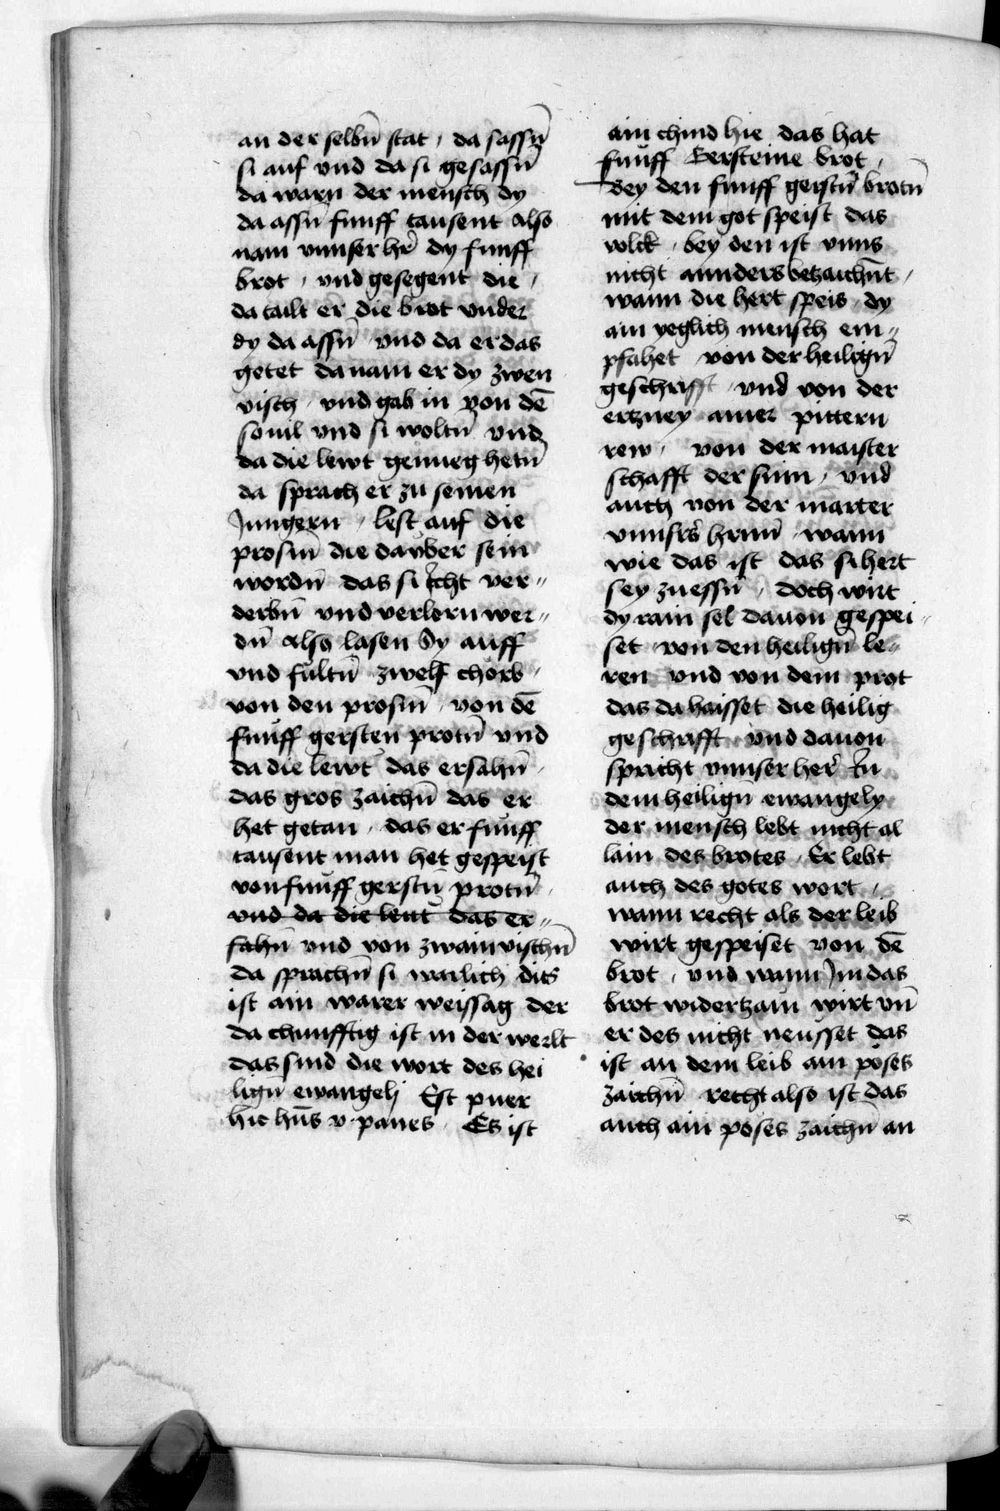 an der selbn̄ stat / da sassn̄
si auf vnd da si gesassn̄
da warn der mensch dy
da assn̄ funff tausent also
nam vnnser hr̄ dy funff
brot / vnd gesegent die /
da tailt er die brot vnder
dy da assn̄ vnd da er das
getet da nam er dy zwen
visch / vnd gab in von dē
souil vnd si woltn̄ vnd
da die lewt genueg hetn̄
da sprach er zu seinen
Jungern / lest auf die
prosm̄ die dauber sein
wordn̄ das si icht ver〃
derbn̄ vnd verlorn wer〃
dn̄ Also lasen Sy auff
vnd fultn̄ zwelf chorb /
von den prosm̄ / von dē
funff gersten protn̄ vnd
da die lewt das ersahn̄ /
das gros zaichn̄ das er
het getan / das er funff
tausent man het gespeist
von funff gerstn̄ protn̄ /
vnd da die leut das er〃
sahn̄ vnd von zwain vischn̄
da sprachn̄ si warlich dits
ist ain warer weissag der
da chunfftig ist in der werlt
das sind die wort des hei
lign̄ ewangelj Est puer
hic hn̄s v panes / Es ist
ain chind hie das hat
funff Gersteine brot /
Bey den funff gerstn̄ brotn̄
mit dem got speist das
volck / bey den ist vnns
nicht annders betzaichn̄t /
wann die hert speis / dy
ain yeglich mensch em〃
pfahet von der heilign̄
geschrifft / vnd von der
ertzney ainer pittern
rew / von der maister
schafft der sinn / vnd
auch von der marter
vnnsrs̄ hrnn̄ / wann
wie das ist das si hert
sey zu essn̄ / doch wirt
dy rain sel dauon gespei〃
set / von den heilign̄ le〃
ren vnd von dem prot
das da haisset die heilig
geschrifft / vnd dauon
spricht vnnser her̄ In
dem heilign̄ ewangely
der mensch lebt nicht al
lain des brotes / Er lebt
auch des gotes wort /
wann recht als der leib
wirt gespeiset von dē
brot / vnd wann Jm das
brot widertzam wirt vn̄
er des nicht neusset das
ist an dem leib ain poses
zaichn̄ recht also ist das
auch ain poses zaichn̄ an